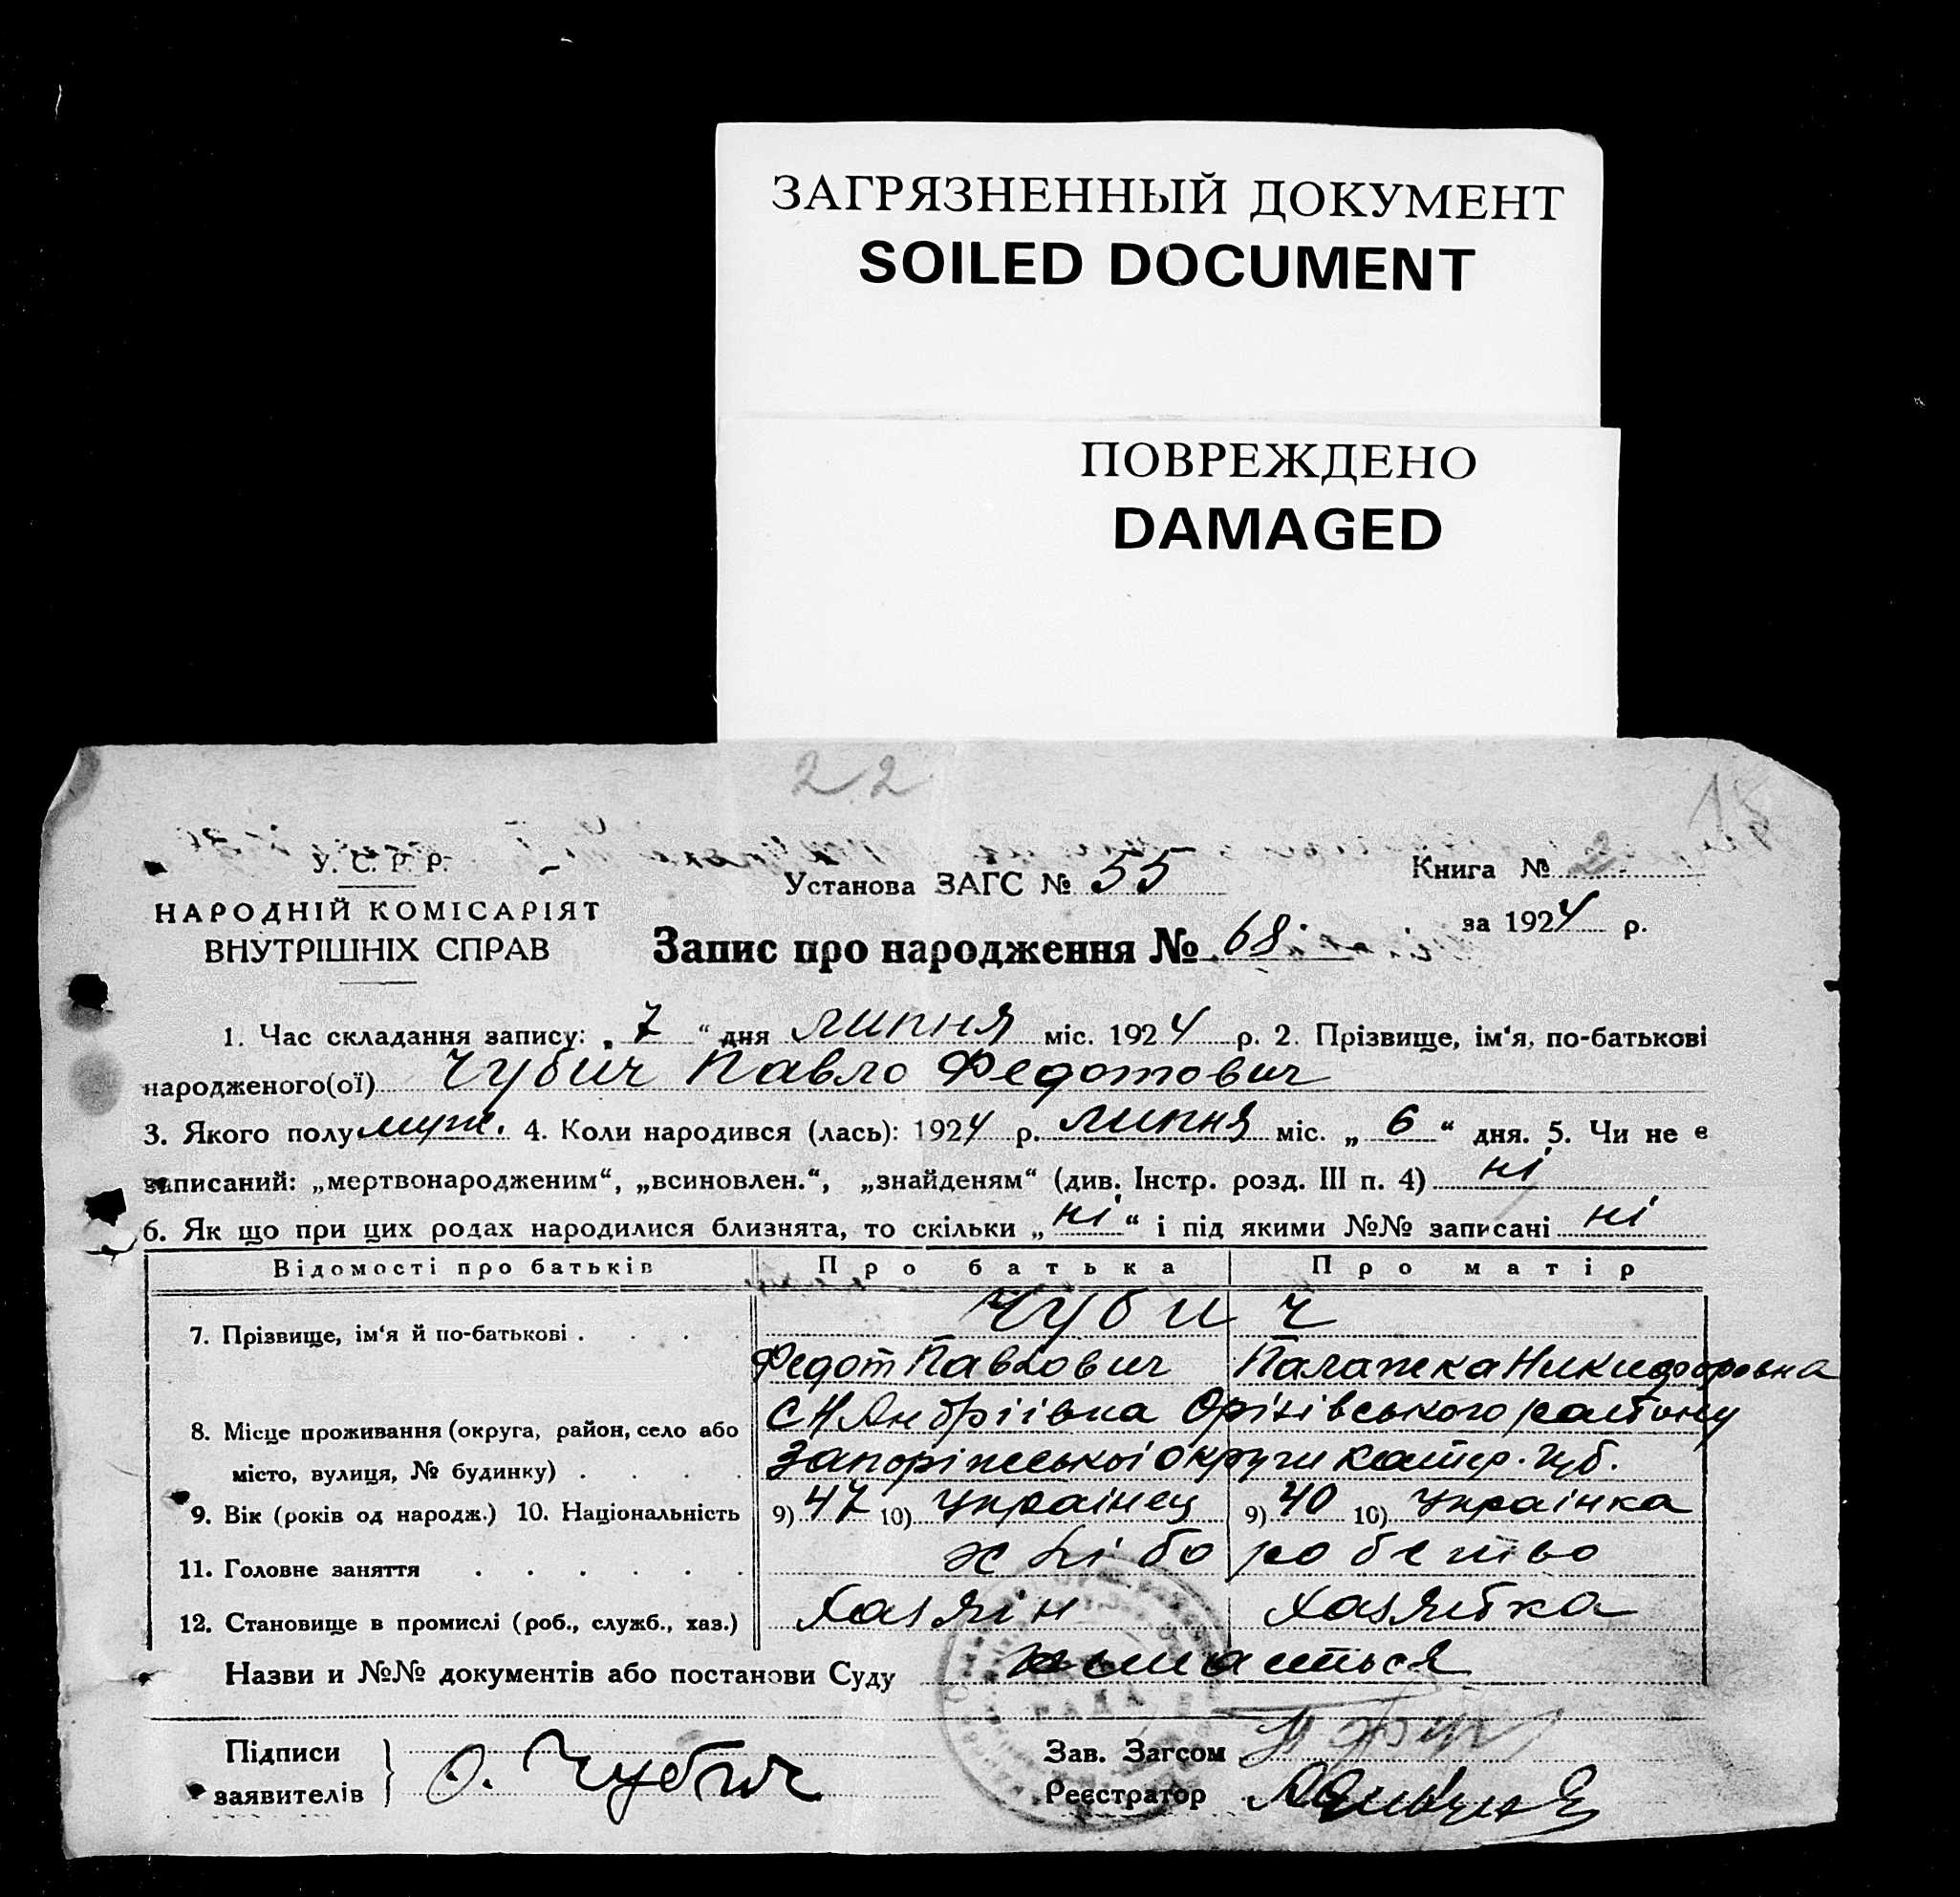 ЗАГРЯЗНЕННЫЙ ДОКУМЕНТ
SOILED DOCUMENT
ПОВРЕЖДЕНО
DAMAGED
22
18
У. С. Р. Р.
НАРОДНІЙ КОМІСАРІЯТ
ВНУТРІШНІХ СПРАВ
Установа ЗАГС № 55
Книга № 2
за 1924 р.
Запис про народження № 68
1. Час складання запису: „7“ дня липня міс. 1924 р. 2. Прізвище, ім'я, по-батькові
народженого(ої) Чубич Павло Федотович
3. Якого полу муж. 4. Коли народився (лась): 1924 р. липня міс. „6“ дня. 5. Чи не є
записаний: „мертвонародженим“, „всиновлен.“, „знайденям“ (див. Інстр. розд. III п. 4) ні
6. Як що при цих родах народилися близнята, то скільки „ні“ і під якими №№ записані ні
Відомості про батьків Про батька Про матір
7. Прізвище, ім'я й по-батькові . . . . Чубич
Федот Павлович Палажка Никифоровна
8. Місце проживання (округа, район, село або С Н Андріівка Оріхівського району
місто, вулиця, № будинку) . . . . Запоріжської округи Катер. Губ.
9. Вік (років од народж.) 10. Національність 9) 47 10) Украінец 9) 40 10) Украінка
11. Головне заняття . . . . . . хліборобство
12. Становище в промислі (роб., служб., хаз.) Хазяін Хазяйка
Назви и №№ документів або постанови Суду
Підписи
заявителів
Ф. Чубич
Зав. Загсом
Реєстратор